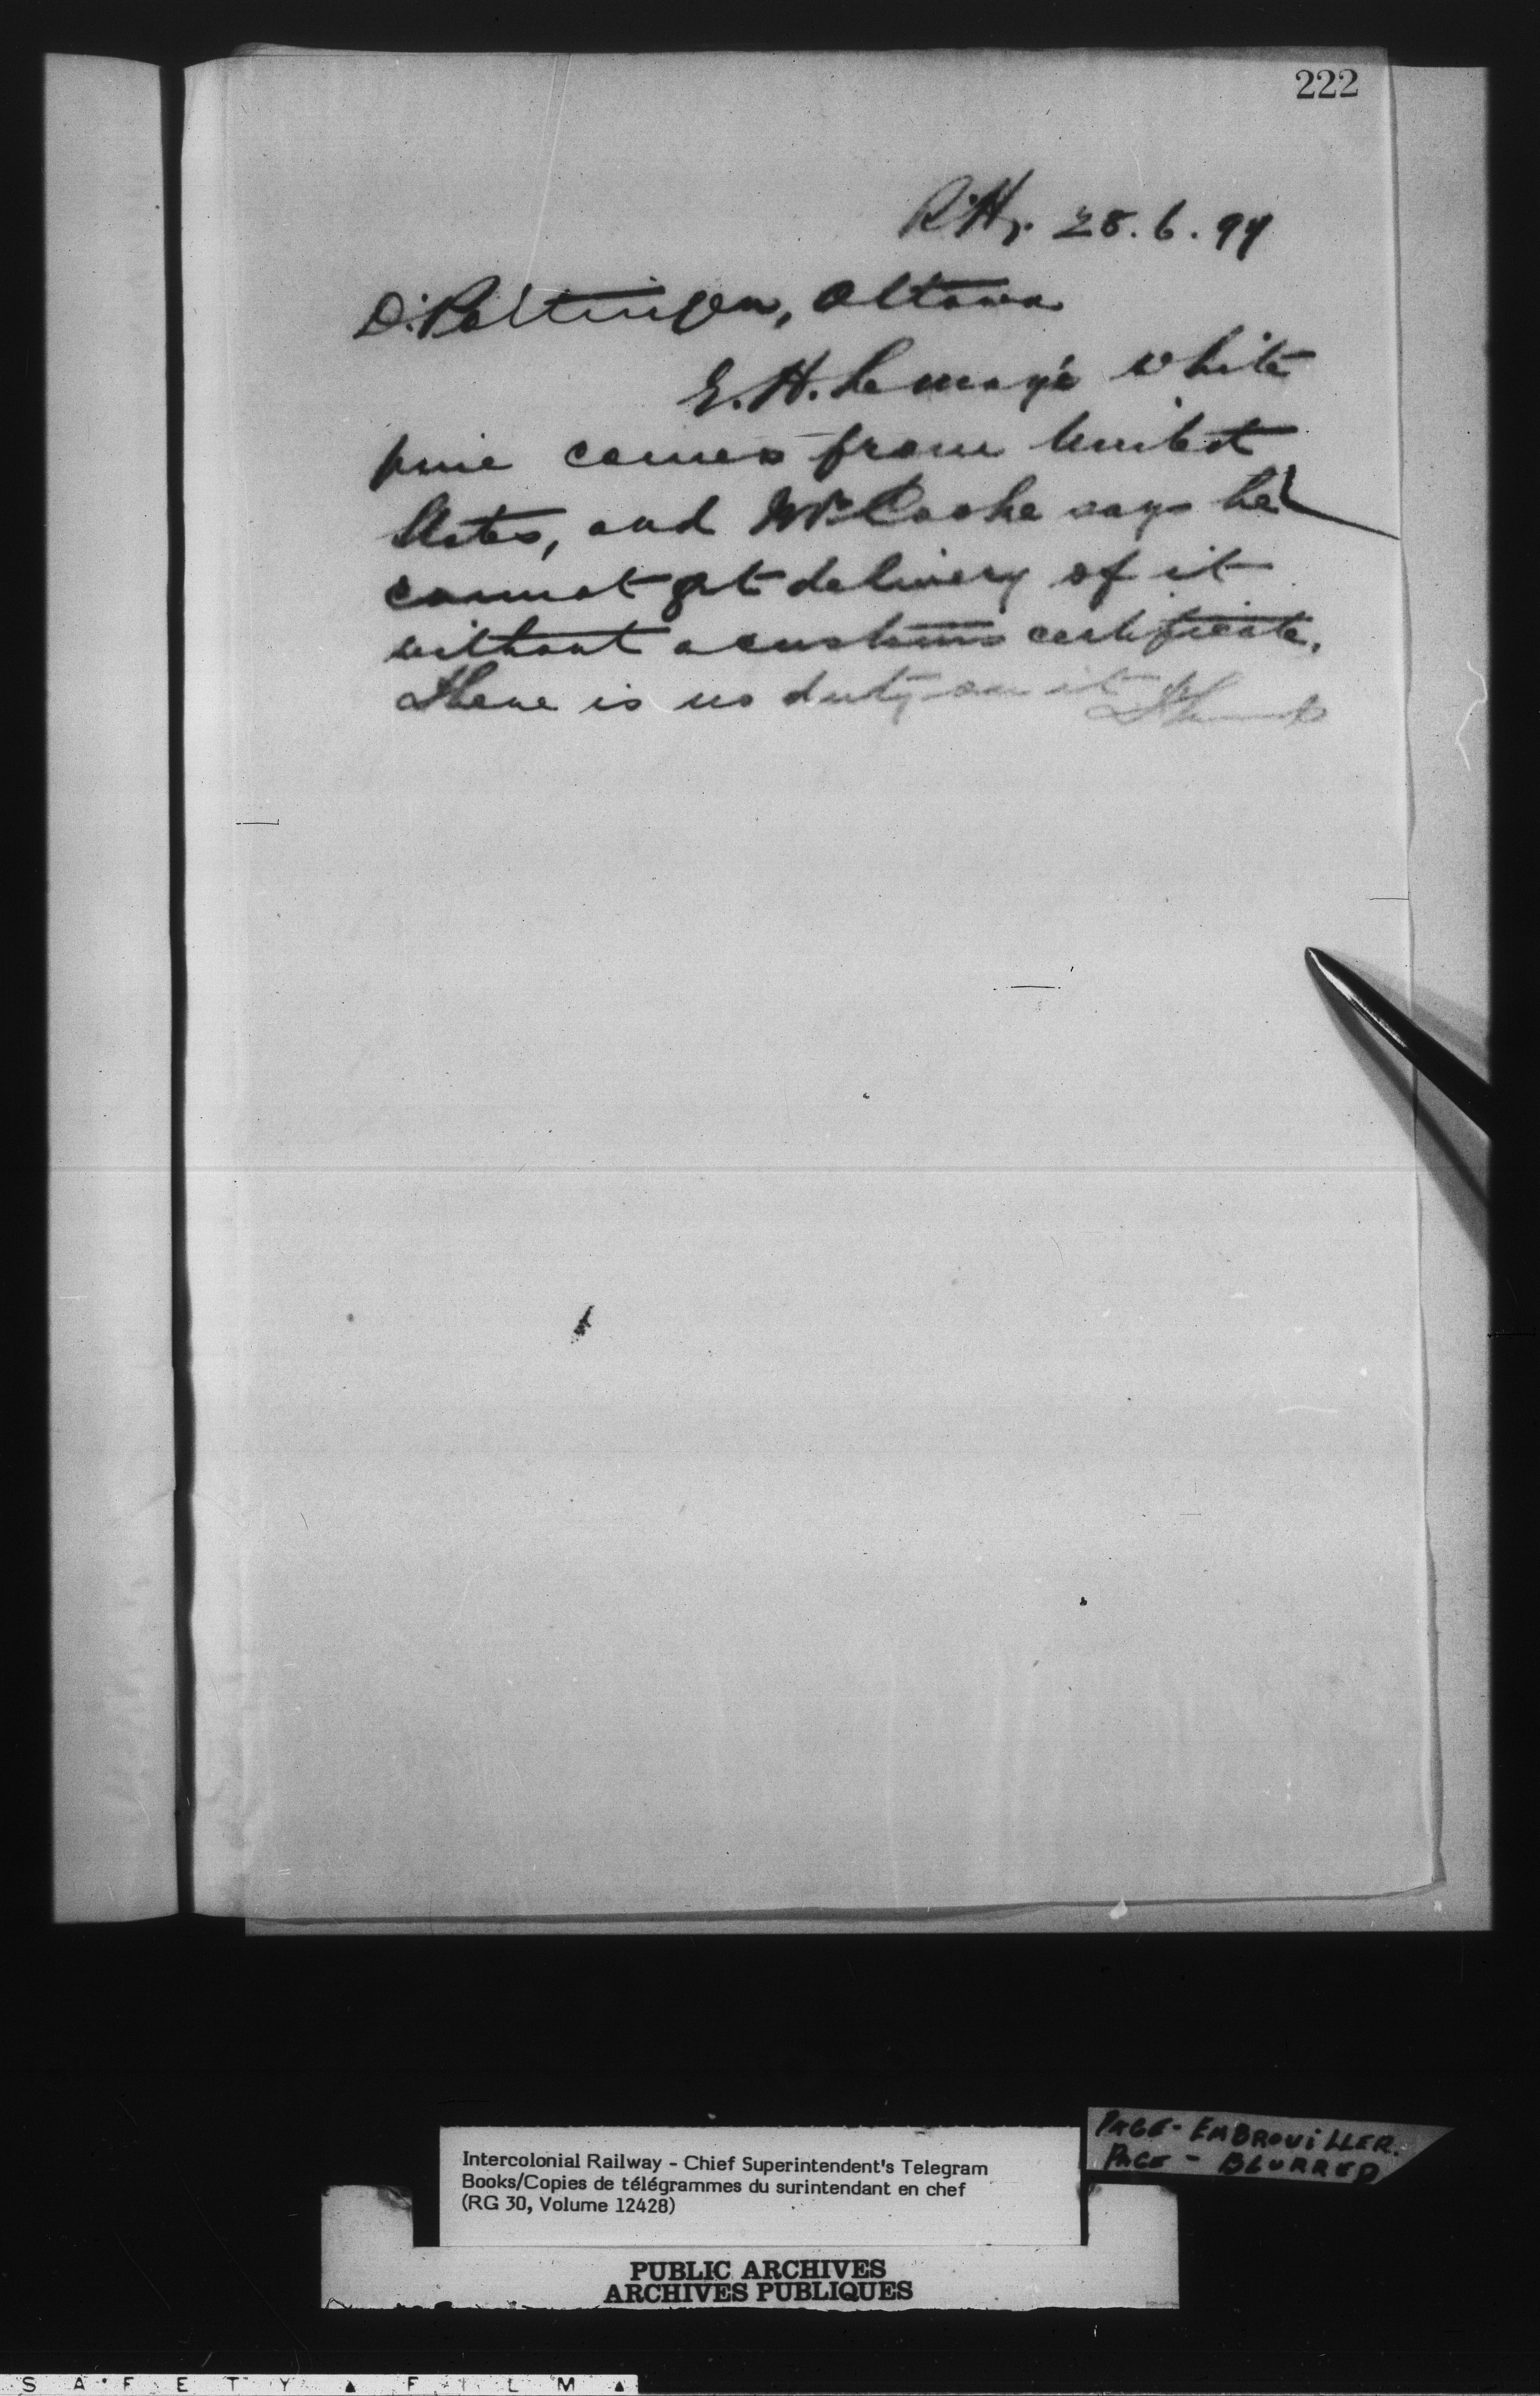 222
28.6.97
D. Pottinger, Ottawa
E. H. Lemay's white
pine comes from United
States, and Mr. Cooke says he
cannot get delivery of it
without a customs certificate.
There is no duty on it
PAGE - EMBROUILLER.
PAGE - BLURRED
Intercolonial Railway - Chief Superintendent's Telegram
Books/Copies de télégrammes du surintendant en chef
(RG 30, Volume 12428)
PUBLIC ARCHIVES
ARCHIVES PUBLIQUES
SAFETY ▲ FILM ▲